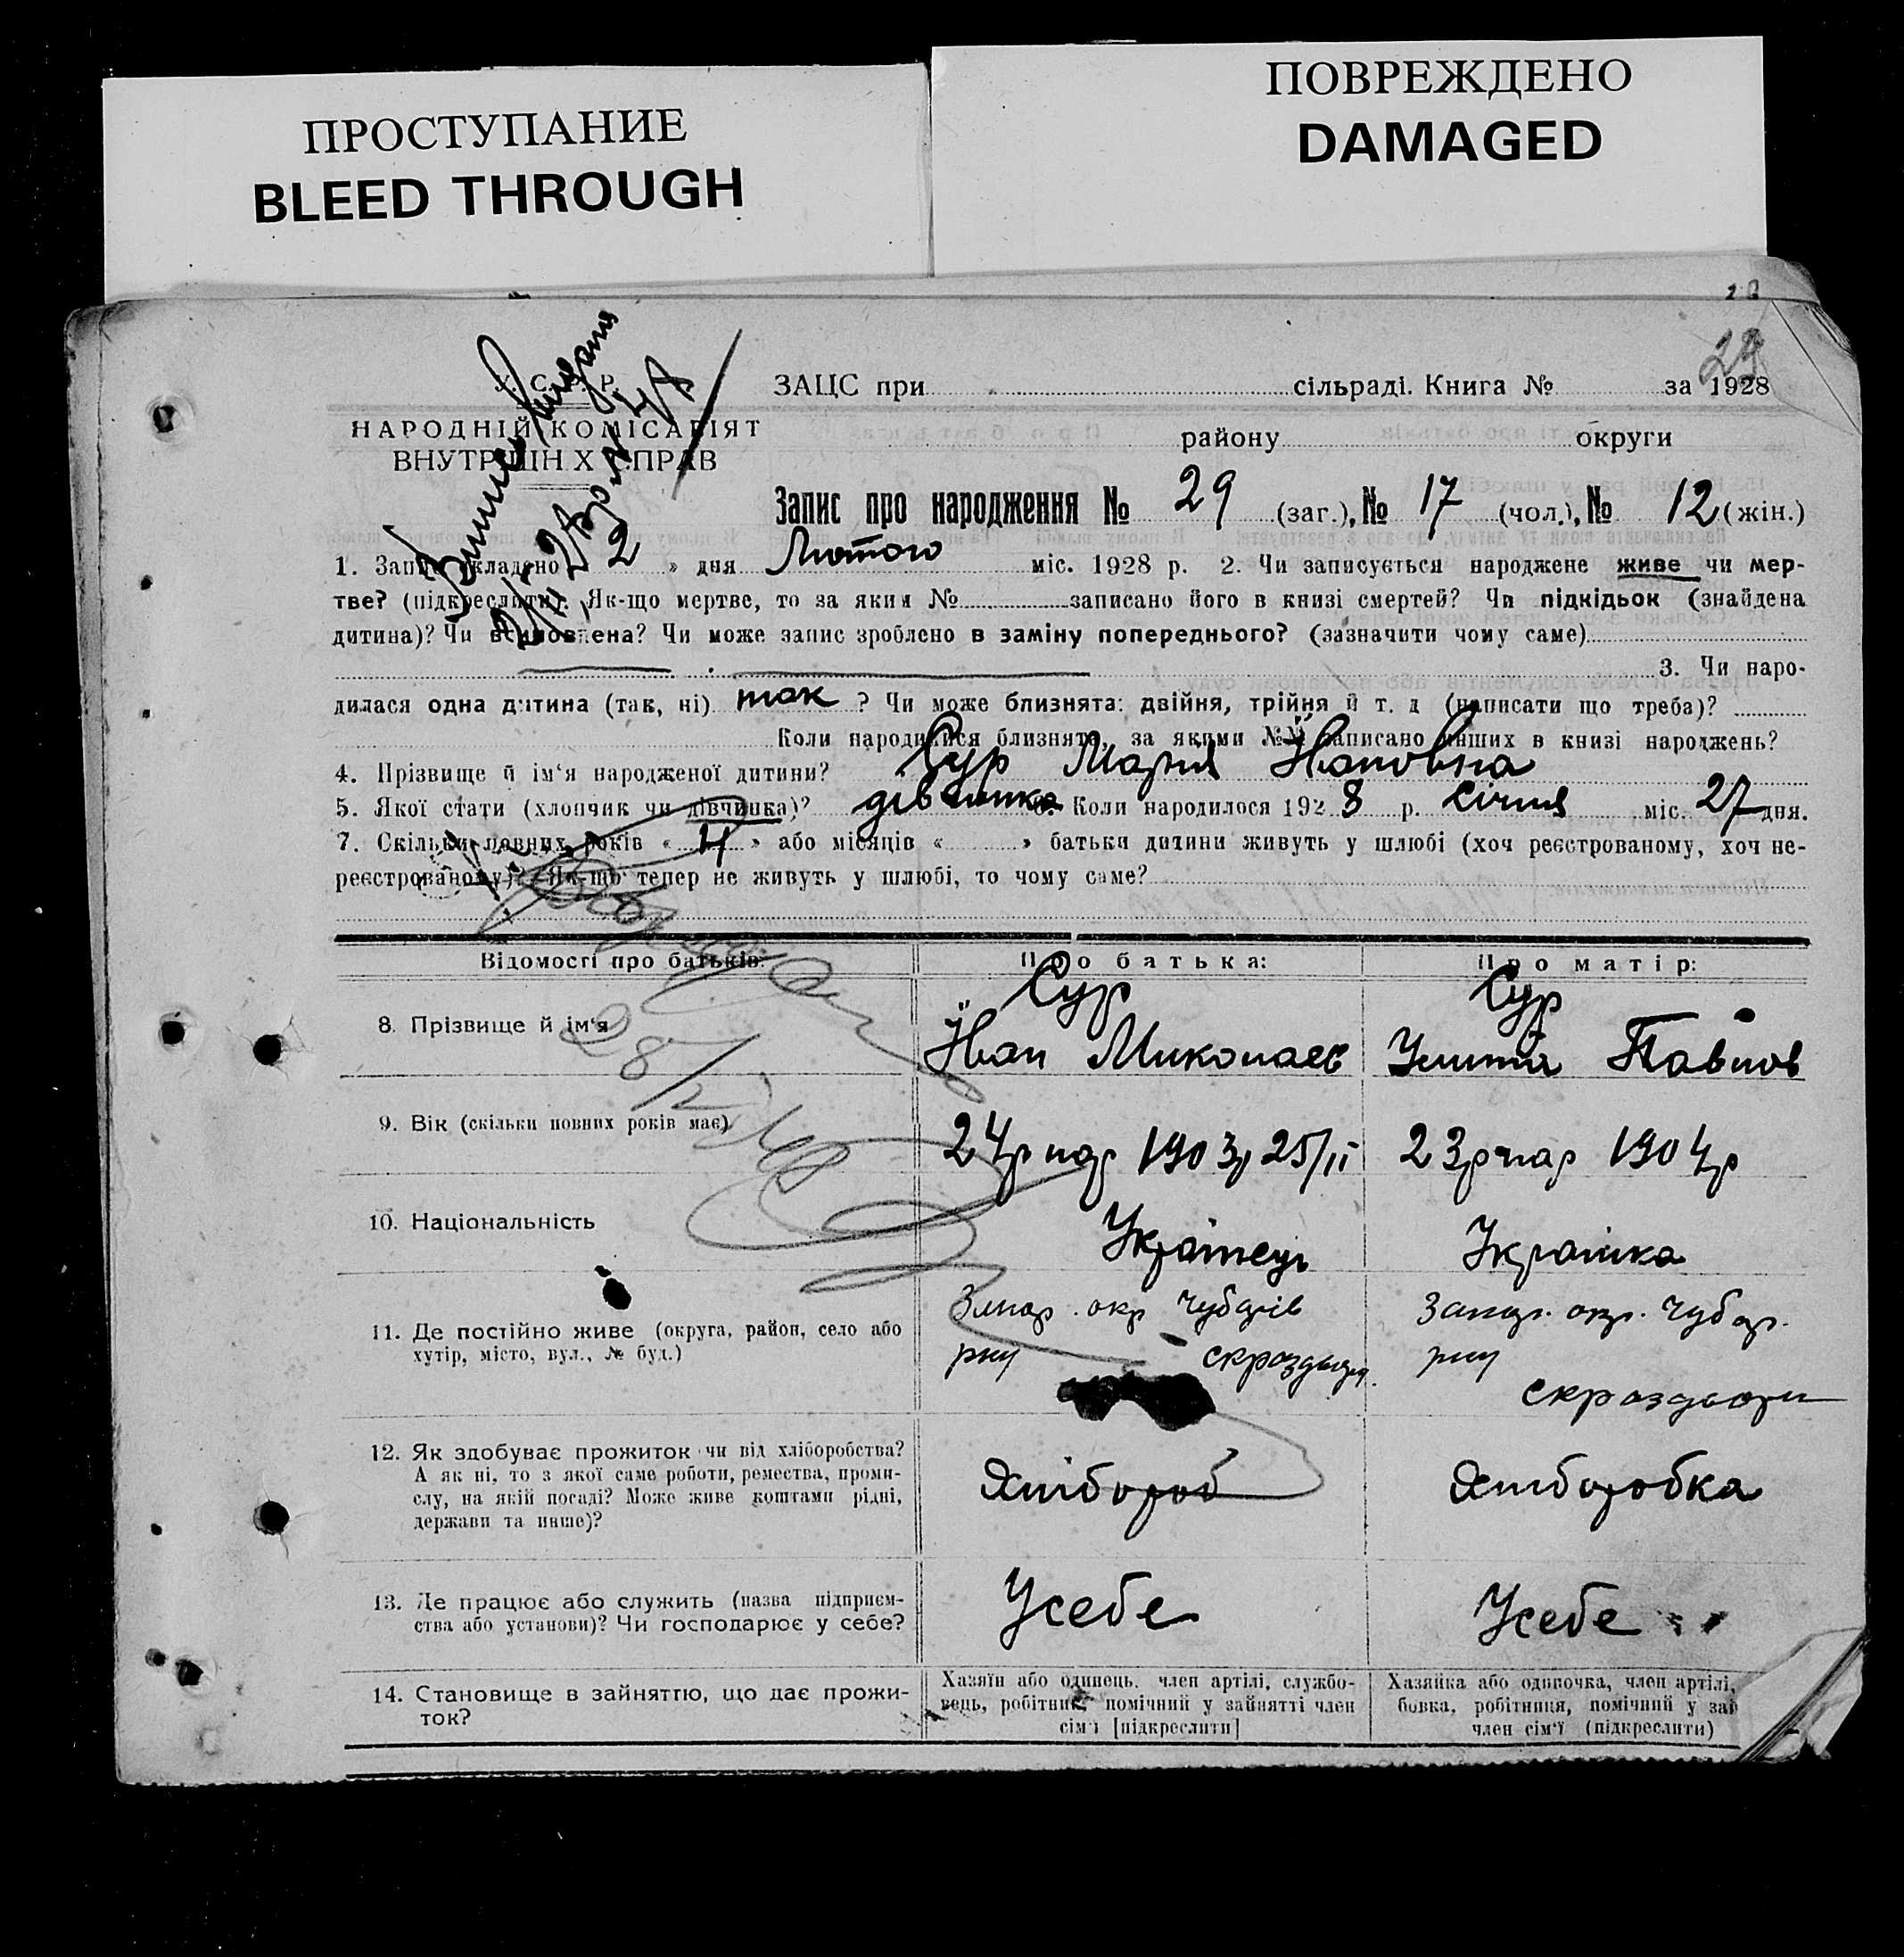 ПРОСТУПАНИЕ
BLEED THROUGH
ПОВРЕЖДЕНО
DAMAGED
29
У. С. Р. Р.
ЗАЦС при сільраді. Книга № за 1928
НАРОДНІЙ КОМІСАРІЯТ
ВНУТРІШНІХ СПРАВ
району округи
Запис про народження № 29 (заг.), № 17 (чол.), № 12 (жін.)
1. Запис складено « 2 » дня Лютого міс. 1928 р. 2. Чи записується народжене живе чи мер-
тве? (підкреслити). Як-що мертве, то за яким № записано його в книзі смертей? Чи підкідьок (знайдена
дитина)? Чи всиновлена? Чи може запис зроблено в заміну попереднього? (зазначити чому саме)
3. Чи наро-
дилася одна дитина (так, ні) так ? Чи може близнята: двійня, трійня й т. д (написати що треба)?
Коли народилися близнята, за якими №№ записано инших в книзі народжень?
4. Прізвище й ім‘я народженої дитини? Сур Марія Івановна
5. Якої стати (хлопчик чи дівчинка)? дівчинка 6. Коли народилося 1928 р. Січня міс. 27 дня.
7. Скільки повних років « 4 » або місяців « » батьки дитини живуть у шлюбі (хоч реєстрованому, хоч не-
реєстрованому)? Як-що тепер не живуть у шлюбі, то чому саме?
Відомості про батьків: Про батька: Про матір:
8. Прізвище й ім‘я
Сур
Іван Миколаєв
Сур
Улита Павлов
9. Вік (скільки повних років має)
24р нар 1903р 25/II
23р нар 1904р
10. Національність
Українець
Українка
11. Де постійно живе (округа, район, село або
хутір, місто, вул., № буд.)
окр Чубарів
рну
Запор. окр. Чубар.
рну
12. Як здобуває прожиток чи від хліборобства?
А як ні, то з якої саме роботи, ремества, проми-
слу, на якій посаді? Може живе коштами рідні,
держави та инше)?
Хлібороб
Хліборобка
13. Де працює або служить (назва підприєм-
ства або установи)? Чи господарює у себе?
Усебе
Усебе
14. Становище в зайняттю, що дає прожи-
ток?
Хазяїн або одинець, член артілі, службо-
вець, робітник, помічний у зайнятті член
сім‘ї [підкреслити]
Хазяйка або одиночка, член артілі,
бовка, робітниця, помічний у зай
член сім‘ї (підкреслити)